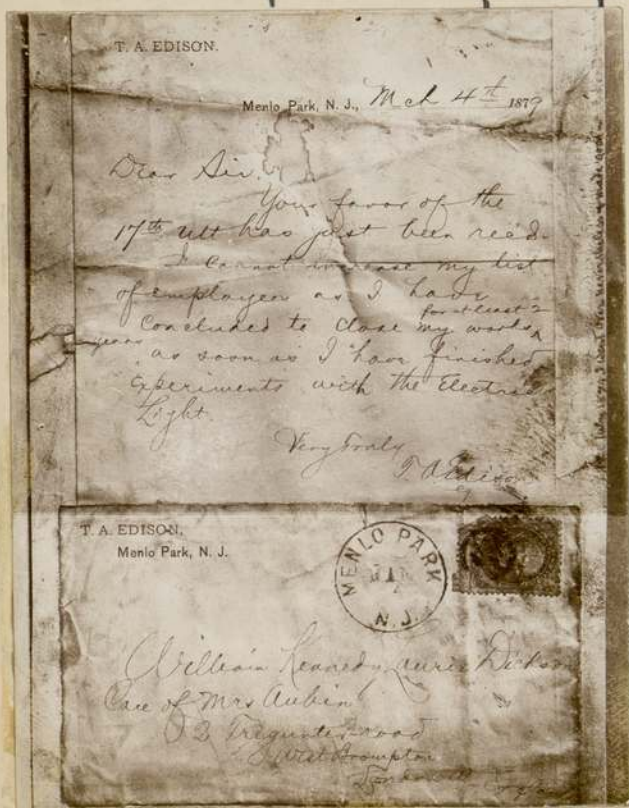 T. A. EDISON.
Menlo Park, N. J., Mch 4th 1879
Dear Sir,
Your favor of the
17th ult has just been rec'd.
I cannot increase my list
of employees as I have
concluded to close my works for at least 2
years as soon as I have finished
experiments with the Electric
Light.
Very Truly
T. A. Edison
T. A. EDISON,
Menlo Park, N. J.
MENLO PARK
N. J.
William Kennedy Laurie Dickson
Care of Mrs Aubin
2 Tregunter road
West Brompton
London